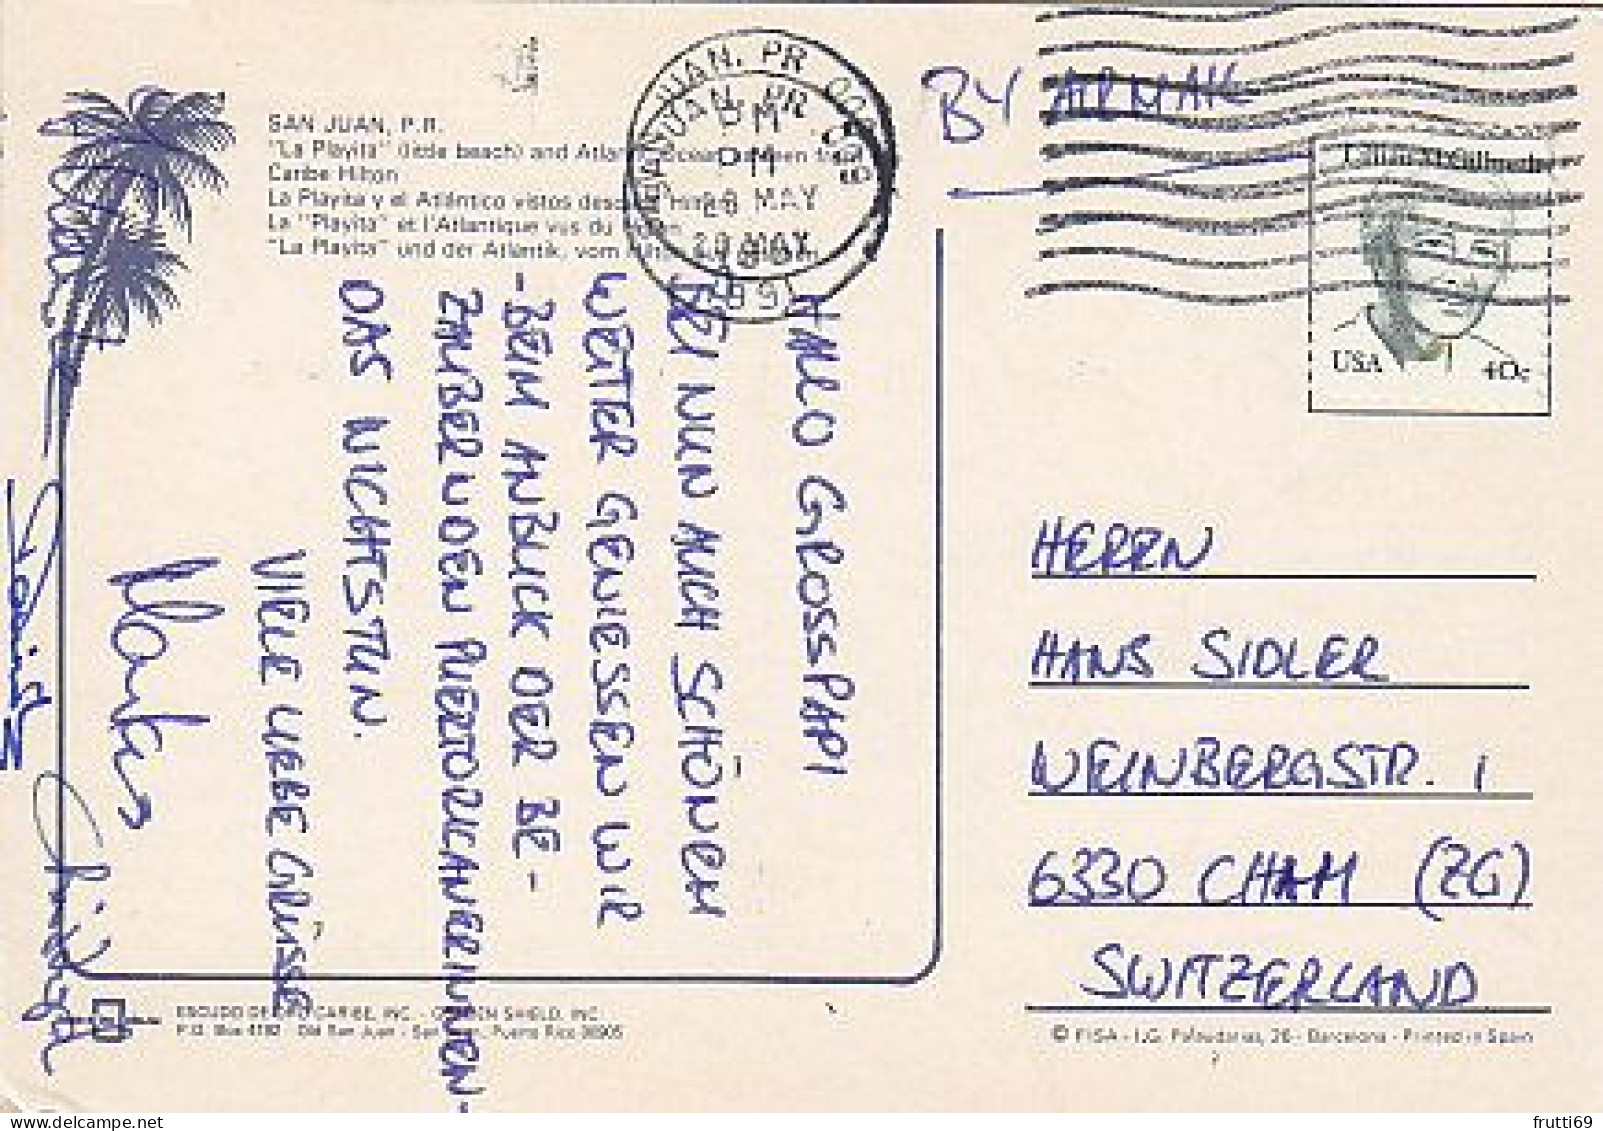 SAN JUAN, P.R.
"La Playita" (little beach) and Atlantic Ocean as seen from
Caribe Hilton
La Playita y el Atlántico vistos desde el Hilton
La "Playita" et l'Atlantique vus du Hilton
"La Playita" und der Atlantik, vom
SAN JUAN, PR
PM
28 MAY
1991
BY AIRMAIL
Lillian M. Gilbreth
USA 40c
HALLO GROSSPAPI
BEI NUN AUCH SCHÖNEM
WETTER GENIESSEN WIR
- BEIM ANBLICK DER BE-
ZAUBERNDEN PUERTORICANERINNEN -
DAS NICHTSTUN.
VIELE LIEBE GRÜSSE
Markus
HERRN
HANS SIDLER
WEINBERGSTR. 1
6330 CHAM (ZG)
SWITZERLAND
ESCUDO DE ORO CARIBE, INC. - GOLDEN SHIELD, INC.
P.O. Box 4192 - Old San Juan - San Juan - Puerto Rico 00905
© FISA - I.G. Palaudarias, 26 - Barcelona - Printed in Spain
frutti69